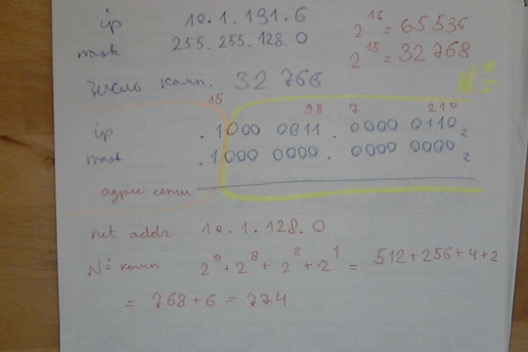 ip 10.1.131.6 2^16 = 65536
mask 255.255.128.0 2^15 = 32768
число комп. 32 766 №
15 98 7 210
ip .1000 0011 . 0000 0110₂
mask .1000 0000 . 0000 0000₂
адрес сети
net addr 10.1.128.0
№ комп 2^9 + 2^8 + 2^2 + 2^1 = 512+256+4+2
= 768+6 = 774